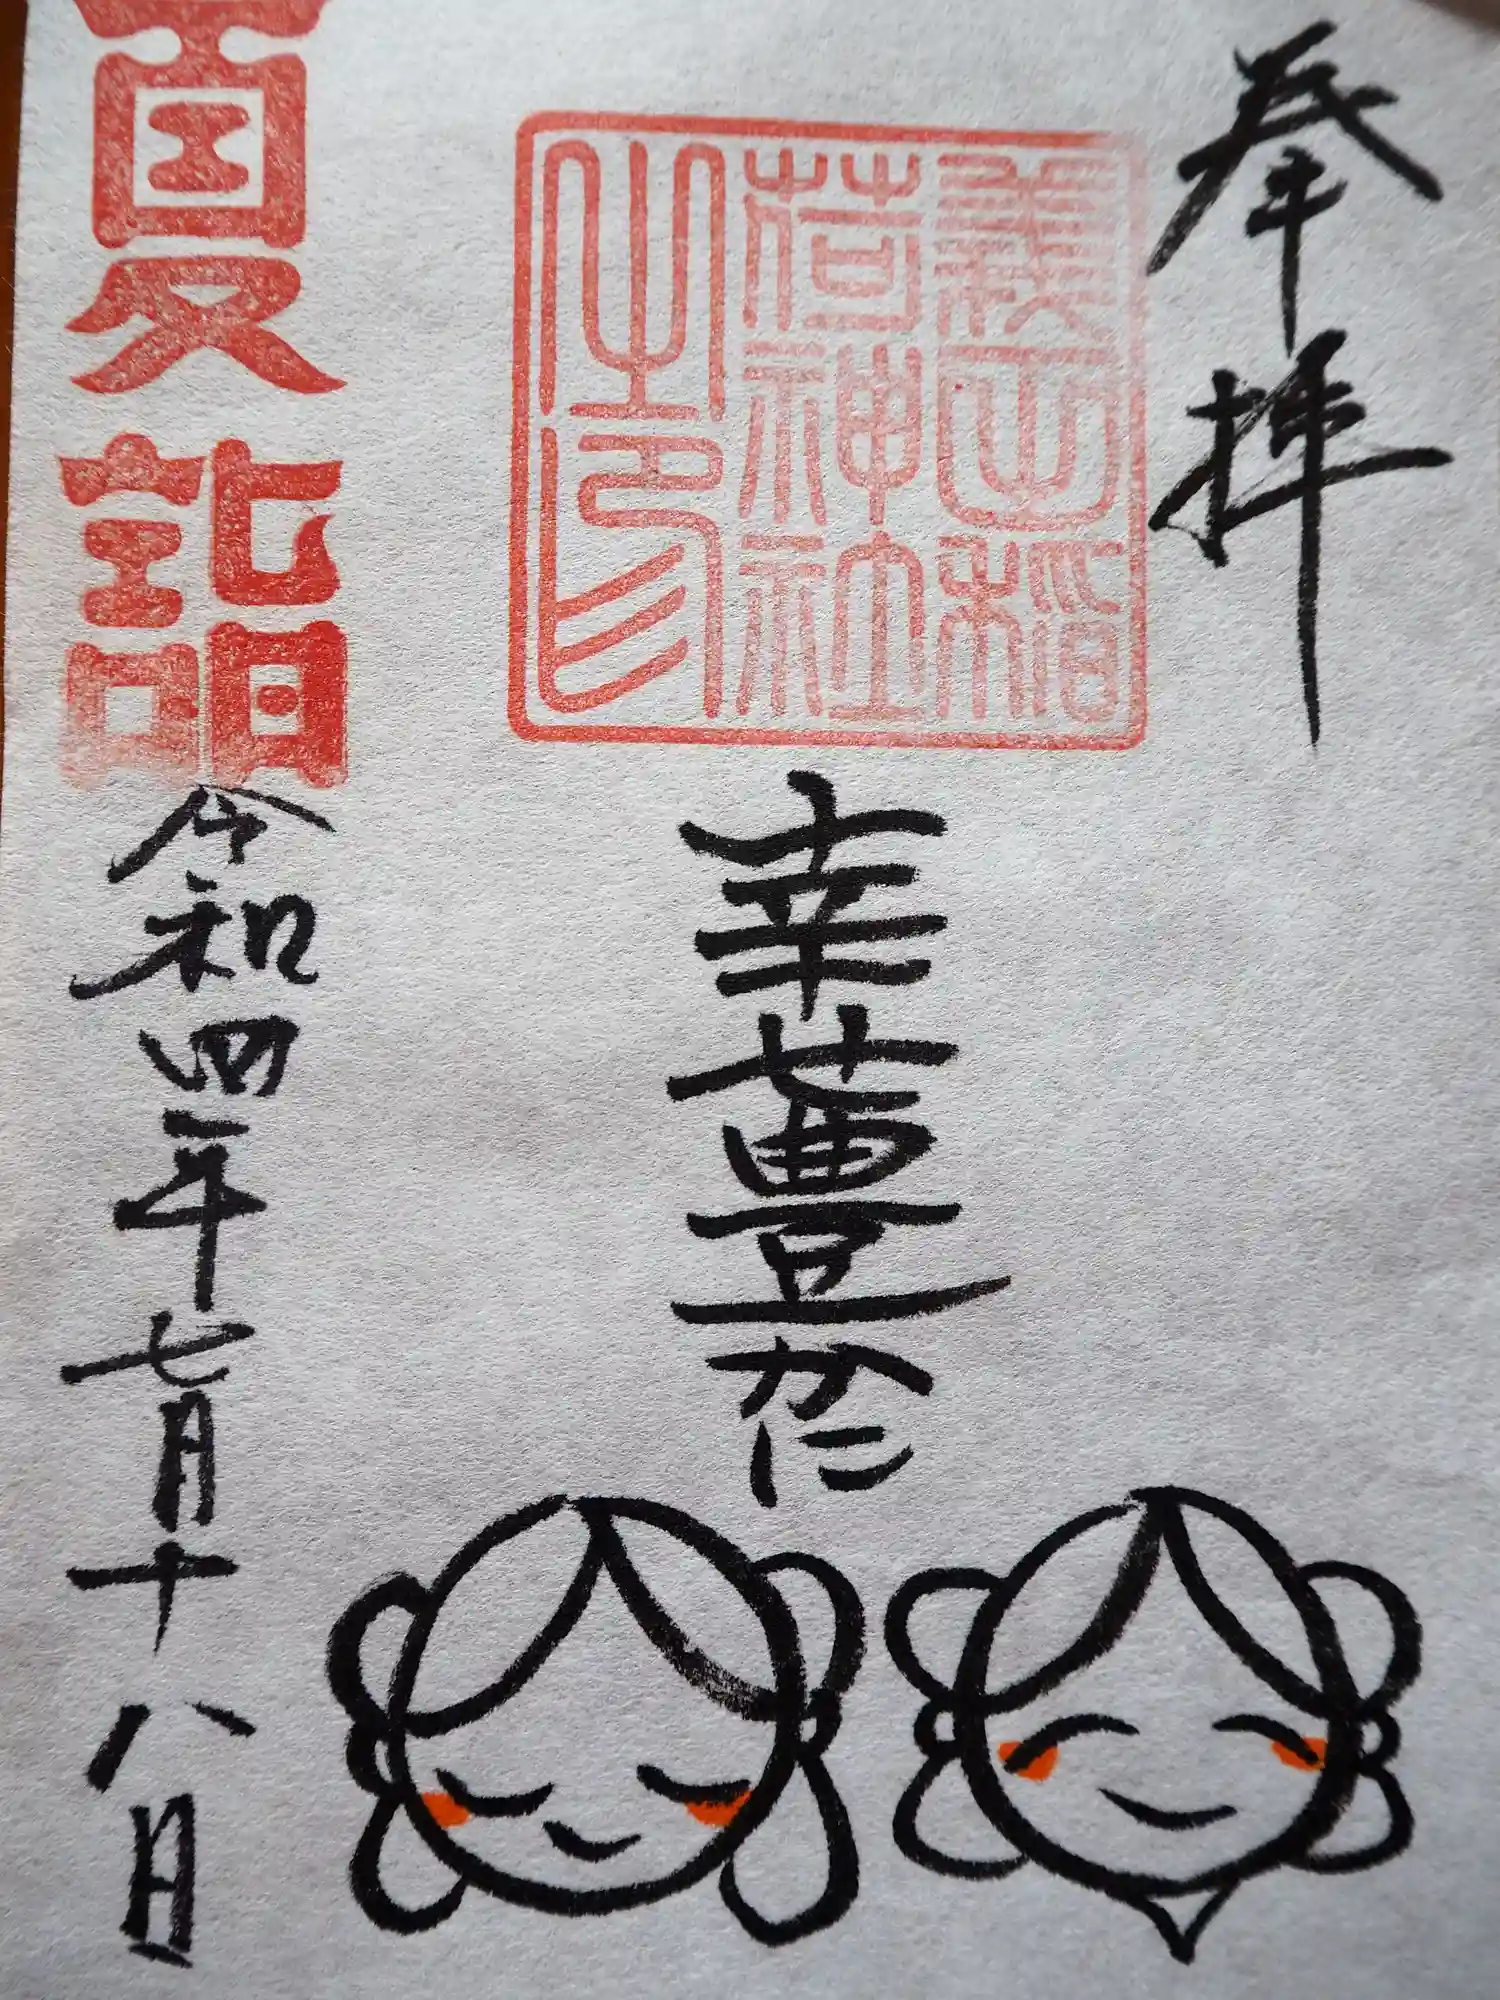 奉拝
義山稲
荷神社
之印
幸豊かに
夏詣
令和四年七月十八日